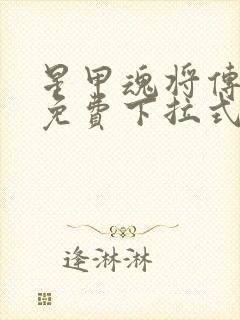 星甲魂将傳
免費下拉式
逢淋淋